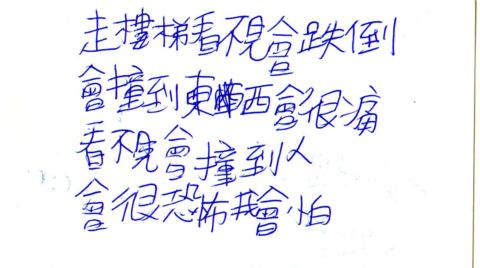 走樓梯看不見會跌倒
會撞到東西會很痛
看不見會撞到人
會很恐怖我會怕